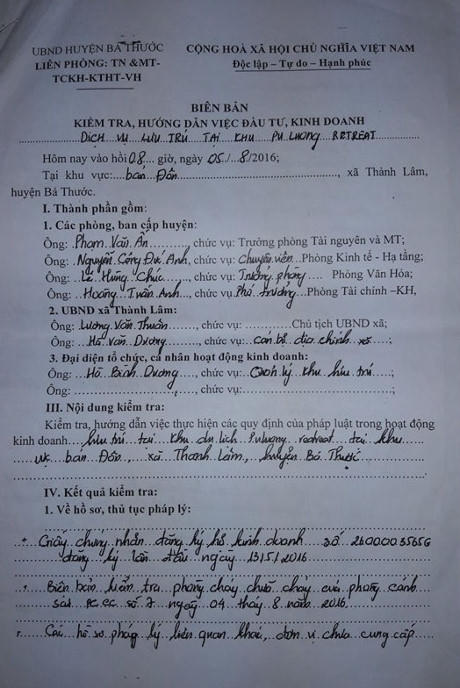 UBND HUYỆN BÁ THƯỚC
LIÊN PHÒNG: TN &MT-
TCKH-KTHT-VH
CỘNG HOÀ XÃ HỘI CHỦ NGHĨA VIỆT NAM
Độc lập – Tự do – Hạnh phúc
BIÊN BẢN
KIỂM TRA, HƯỚNG DẪN VIỆC ĐẦU TƯ, KINH DOANH
DỊCH VỤ LƯU TRÚ TẠI KHU PU LUONG RETREAT
Hôm nay vào hồi 08 giờ, ngày 05/8/2016;
Tại khu vực: bản Đôn, xã Thành Lâm,
huyện Bá Thước.
I. Thành phần gồm:
1. Các phòng, ban cấp huyện:
Ông: Phạm Văn Ân, chức vụ: Trưởng phòng Tài nguyên và MT;
Ông: Nguyễn Công Đức Anh, chức vụ: Chuyên viên Phòng Kinh tế - Hạ tầng;
Ông: Lê Hùng Chúc, chức vụ: Trưởng phòng Phòng Văn Hóa;
Ông: Hoàng Tuấn Anh, chức vụ: Phó trưởng Phòng Tài chính –KH,
2. UBND xã Thành Lâm:
Ông: Lương Văn Thuân, chức vụ: Chủ tịch UBND xã;
Ông: Hà Văn Dương, chức vụ: cán bộ địa chính xã;
3. Đại diện tổ chức, cá nhân hoạt động kinh doanh:
Ông: Hà Bình Dương, chức vụ: Quản lý khu lưu trú;
Ông: , chức vụ: ;
III. Nội dung kiểm tra:
Kiểm tra, hướng dẫn việc thực hiện các quy định của pháp luật trong hoạt động
kinh doanh lưu trú tại khu du lịch Puluong retreat tại khu
vực bản Đôn, xã Thành Lâm, huyện Bá Thước
IV. Kết quả kiểm tra:
1. Về hồ sơ, thủ tục pháp lý:
+ Giấy chứng nhận đăng ký hộ kinh doanh số
đăng ký lần đầu ngày 13/5/2016
+ Biên bản kiểm tra phòng cháy chữa cháy của phòng cảnh
sát PC CC số 7 ngày 04 tháng 8 năm 2016
+ Các hồ sơ pháp lý liên quan khác, đơn vị chưa cung cấp